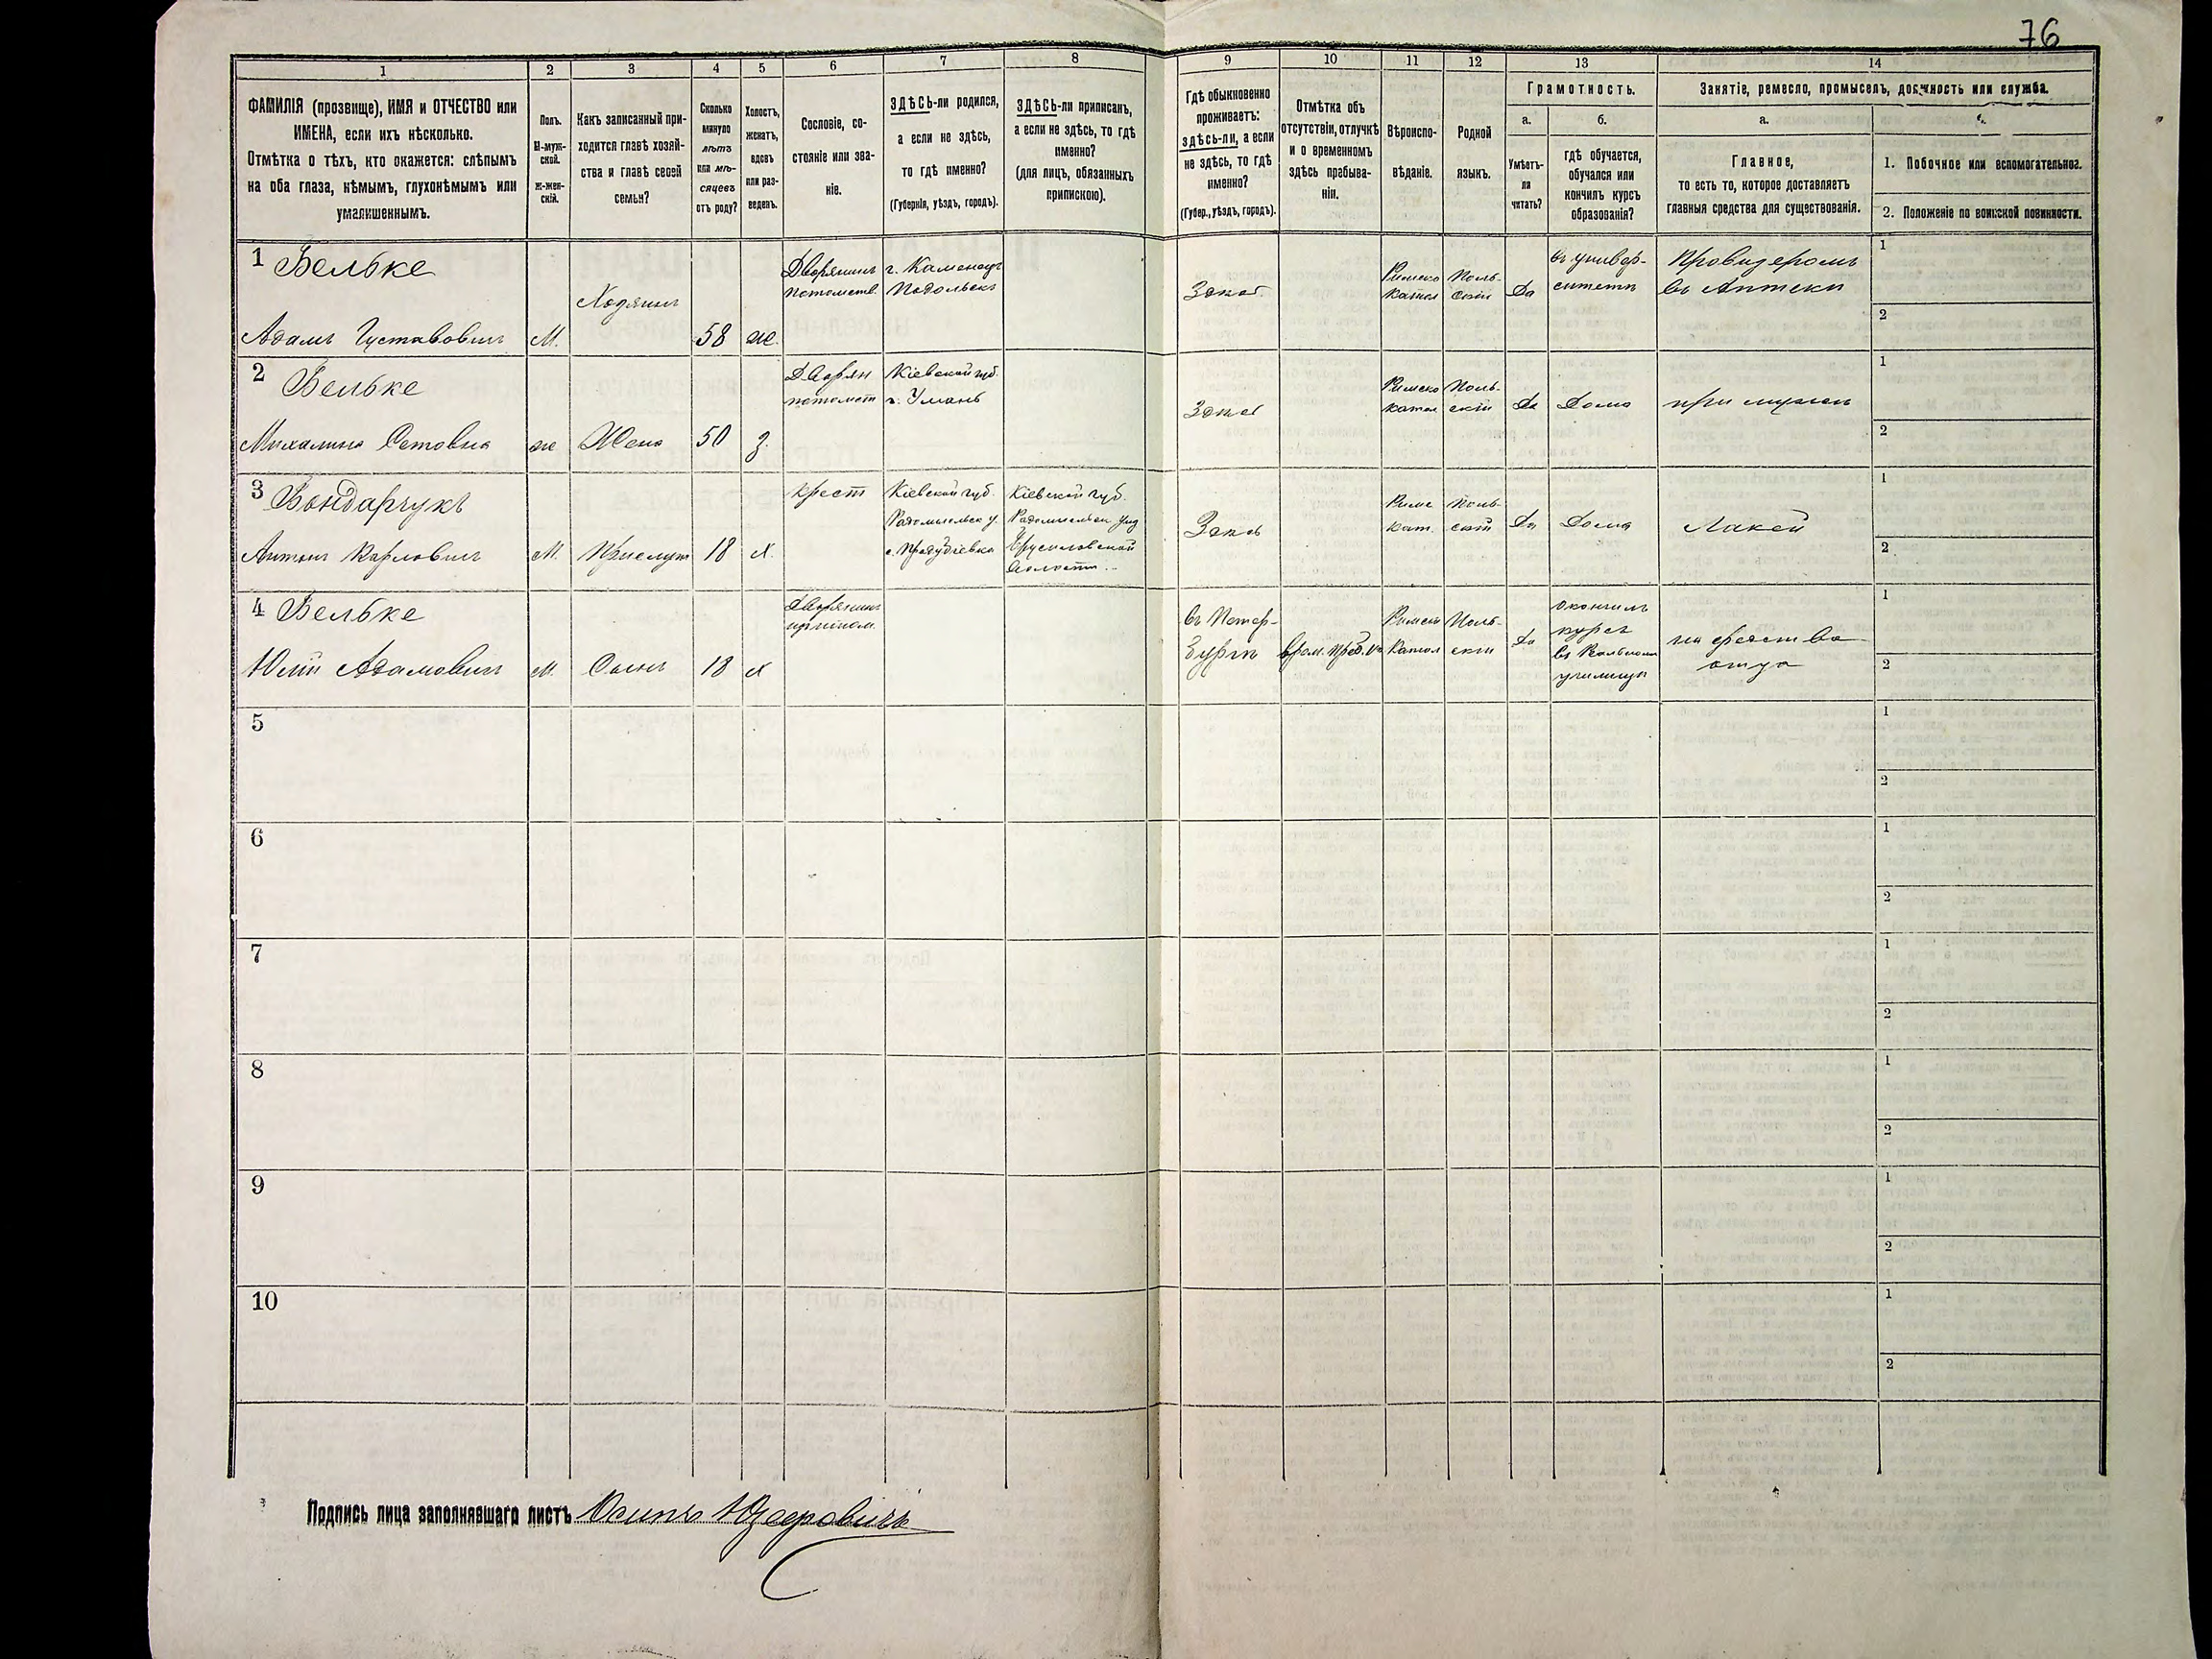 76
1 2 3 4 5 6 7 8 9 10 11 12 13 14
ФАМИЛІЯ (прозвище), ИМЯ и ОТЧЕСТВО или
ИМЕНА, если ихъ нѣсколько.
Отмѣтка о тѣхъ, кто окажется: слѣпымъ
на оба глаза, нѣмымъ, глухонѣмымъ или
умалишеннымъ.
Полъ.
М-муж-
ской.
ж-жен-
скій.
Какъ записанный при-
ходится главѣ хозяй-
ства и главѣ своей
семьи?
Сколько
минуло
лѣтъ
или мѣ-
сяцевъ
отъ роду?
Холостъ,
женатъ,
вдовъ
или раз-
веденъ.
Сословіе, со-
стояніе или зва-
ніе.
ЗДѢСЬ-ли родился,
а если не здѣсь,
то гдѣ именно?
(Губернія, уѣздъ, городъ).
ЗДѢСЬ-ли приписанъ,
а если не здѣсь, то гдѣ
именно?
(для лицъ, обязанныхъ
припискою).
Гдѣ обыкновенно
проживаетъ:
здѣсь-ли, а если
не здѣсь, то гдѣ
именно?
(Губер., уѣздъ, городъ).
Отмѣтка объ
отсутствіи, отлучкѣ
и о временномъ
здѣсь пребыва-
ніи.
Вѣроиспо-
вѣданіе.
Родной
языкъ.
Грамотность.
а.
Умѣетъ-
ли
читать?
б.
гдѣ обучается,
обучался или
кончилъ курсъ
образованія?
Занятіе, ремесло, промыселъ, должность или служба.
а.
Главное,
то есть то, которое доставляетъ
главныя средства для существованія.
1. Побочное или вспомогательное.
2. Положеніе по воинской повинности.
1 Бельке
Адамъ Густавовичъ
М.
Хозяинъ
58
же.
Дворянинъ
потомств.
г. Каменецъ
Подольскъ
Здѣсь
Римско
катол
Поль-
скій
Да
въ универ-
ситетѣ
Провизеромъ
въ Аптеки
1
2
2 Бельке
же
Жена
50
з.
Дворян
потомст
Кіевской губ.
г. Умань
Здѣсь
Римско
катол
Поль-
скій
Да
Дома
при мужемъ
1
2
3 Бондарчукъ
Антонъ Карловичъ
М.
Прислуга
18
х.
крест
Кіевской губ.
Радомысльск у.
Кіевской губ.
Брусиловской
волости
Здѣсь
Римс
кат.
Поль-
скій
Да
Дома
Лакей
1
2
4 Бельке
Юлій Адамовичъ
М.
Сынъ
18
х
Дворянинъ
въ Петер-
бургѣ
Римско
катол
Поль-
скій
Да
окончилъ
курсъ
въ Реальномъ
училищѣ
на средства
отца
1
2
5
1
2
6
1
2
7
1
2
8
1
2
9
1
2
10
1
2
Подпись лица заполнявшаго листъ Осипъ